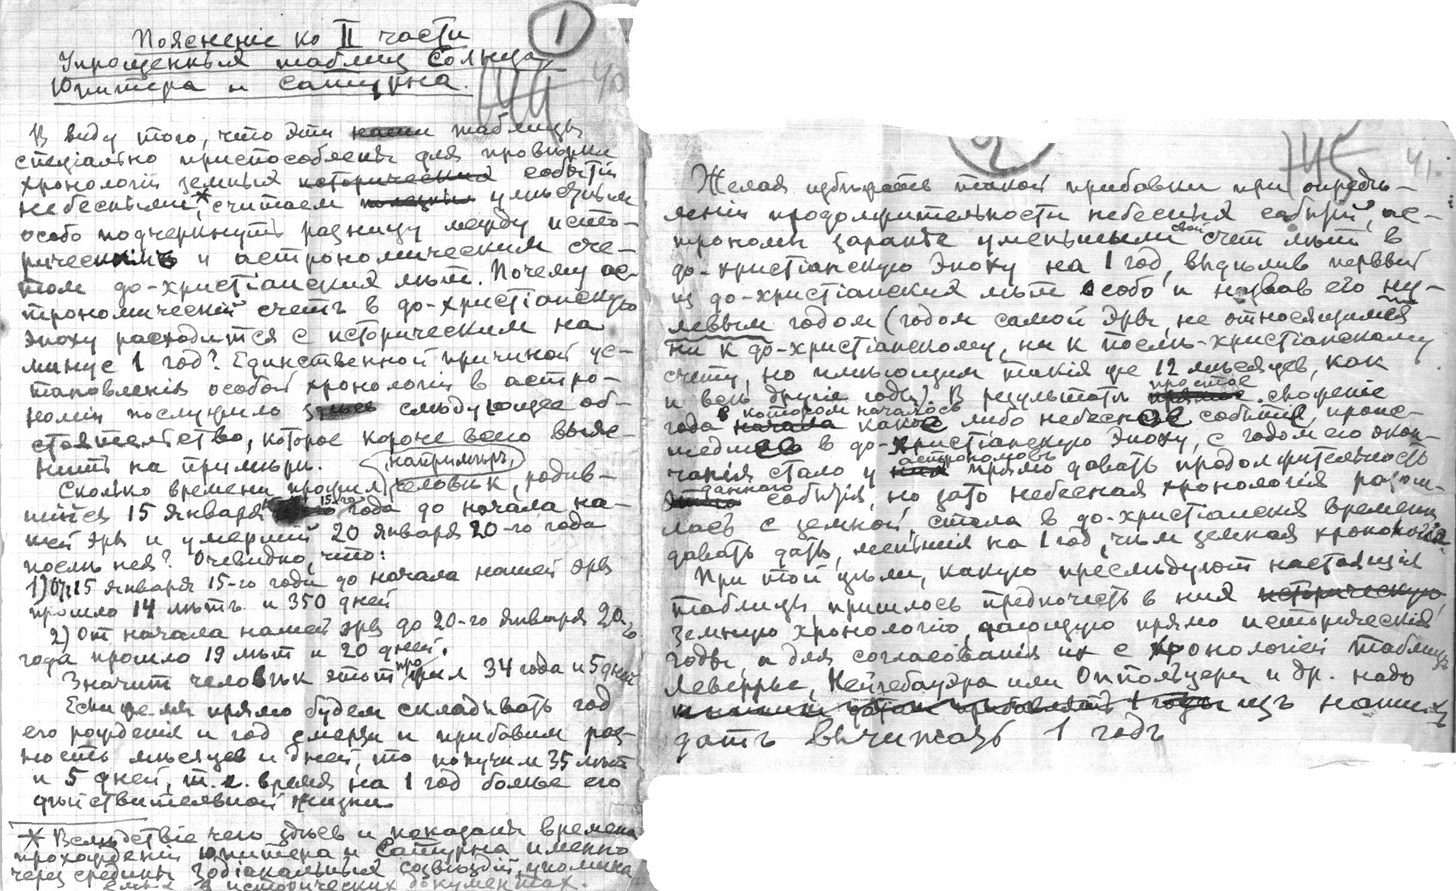 1
Поясненiе ко II части
Упрощенныя таблиц Солнца,
Юпитера и Сатурна.
144
40
В виду того, что эти наши таблицы
спецiально приспособлены для провѣрки
хронологiи земныя историческия событiй
небесными*, считаем умѣстным
особо подчеркнуть разницу между исто-
рическимъ и астрономическим сче-
том до-христiанския лѣт. Почему ас-
трономическiй счетъ в до-христiанскую
эпоху расходится с историческим на
минус 1 год? Единственной причиной ус-
тановленiя особой хронологiи в астро-
номiи послужило здѣсь слѣдующее об-
стоятельство, которое короче всего выяс-
нить на примѣрѣ.
Сколько времени прожил, (напримѣръ,) человѣк, родив-
шiйся 15 января 15-го года до начала на-
шей эры и умершiй 20 января 20-го года
послѣ нея? Очевидно, что:
1) От 15 января 15-го года до начала нашей эры
прошло 14 лѣтъ и 350 дней
2) От начала нашей эры до 20-го января 20-го
года прошло 19 лѣт и 20 дней.
Значит человѣк этот прожил 34 года и 5 дней
Если же мы прямо будем складывать год
его рожденiя и год смерти и прибавим раз-
ность мѣсяцев и дней, то получим 35 лѣт
и 5 дней, т. е. время на 1 год болѣе его
дѣйствительной жизни.
* Вслѣдствiе чего здѣсь и показаны времена
прохожденiй Юпитера и Сатурна именно
через средины Зодiакальныя созвѣздiй, упомина-
емыя в исторических документах.
2
145
41.
Желая избѣжать такой прибавки при опредѣ-
ленiи продолжительности небесныя событiй, ас-
трономы заранѣе уменьшили свой счет лѣт в
до-христiанскую эпоху на 1 год, выдѣлив первый
из до-христiанския лѣт особо и назвав его ну-
левым годом (годом самой эры, не относящимся
ни к до-христiанскому, ни к послѣ-христiанскому
счету, но имѣющим такiя же 12 мѣсяцев, как
и всѣ другiе годы). В результатѣ простое прямое сложенiе
года в котором началось начала какое либо небесное событiе, проис-
шедшее в до-христiанскую эпоху, с годом его окон-
чанiя стало у астрономовъ них прямо давать продолжительность
даннаго событiя, но зато небесная хронологiя разош-
лась с земной, стала в до-христiанския времена
давать даты, меньшiя на 1 год, чѣм земная хронологiя.
При той цѣли, какую преслѣдуют настоящiя
таблицы пришлось предпочесть в них историческую
земную хронологiю, дающую прямо историческiя
годы, а для согласованiя их с хронологiей таблиц
Леверрье, Нейгебауэра или Оппольцера и др. надо
изъ наших
датъ вычитать 1 годъ